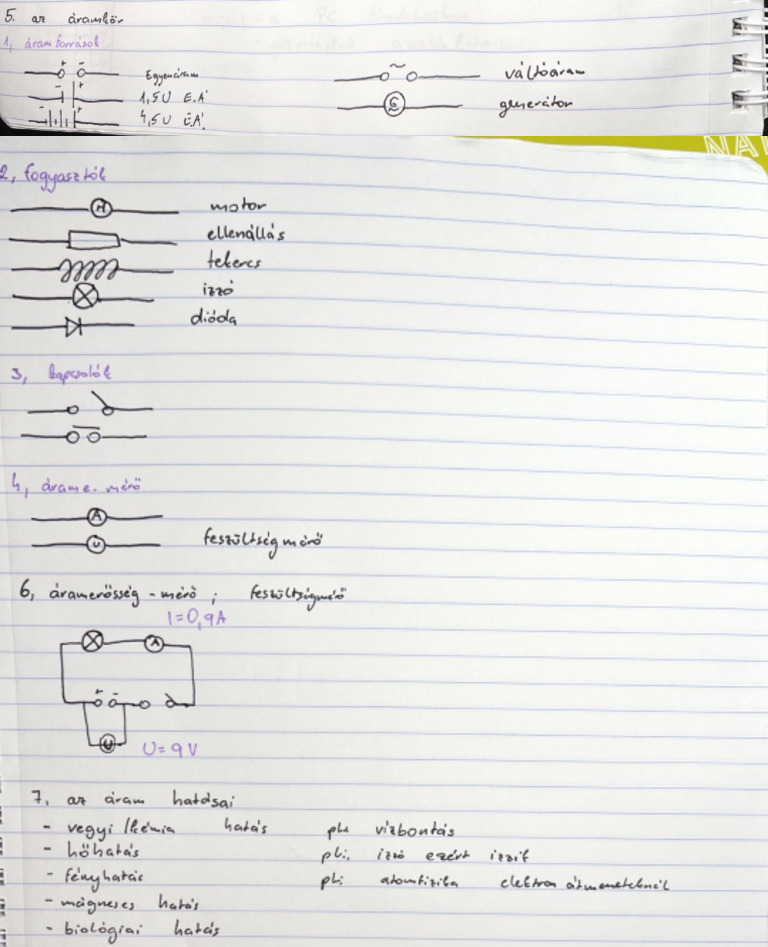 5. az áramkör
1, áramforrások
+ - Egyenáram
~ váltóáram
- + 1,5 V E.Á
G generátor
- + 4,5 V E.Á.
NA
2, fogyasztók
M motor
ellenállás
tekercs
izzó
dióda
3, kapcsolók
4, árame. mérő
A
U feszültségmérő
6, áramerősség - mérő ; feszültségmérő
I = 0,9A
A
+ -
U U = 9 V
7, az áram hatásai
- vegyi /kémia hatás pl: vízbontás
- hőhatás pl: izzó ezért izzik
- fényhatás pl: atomfizika elektron átmeneteknél
- mágneses hatás
- biológiai hatás